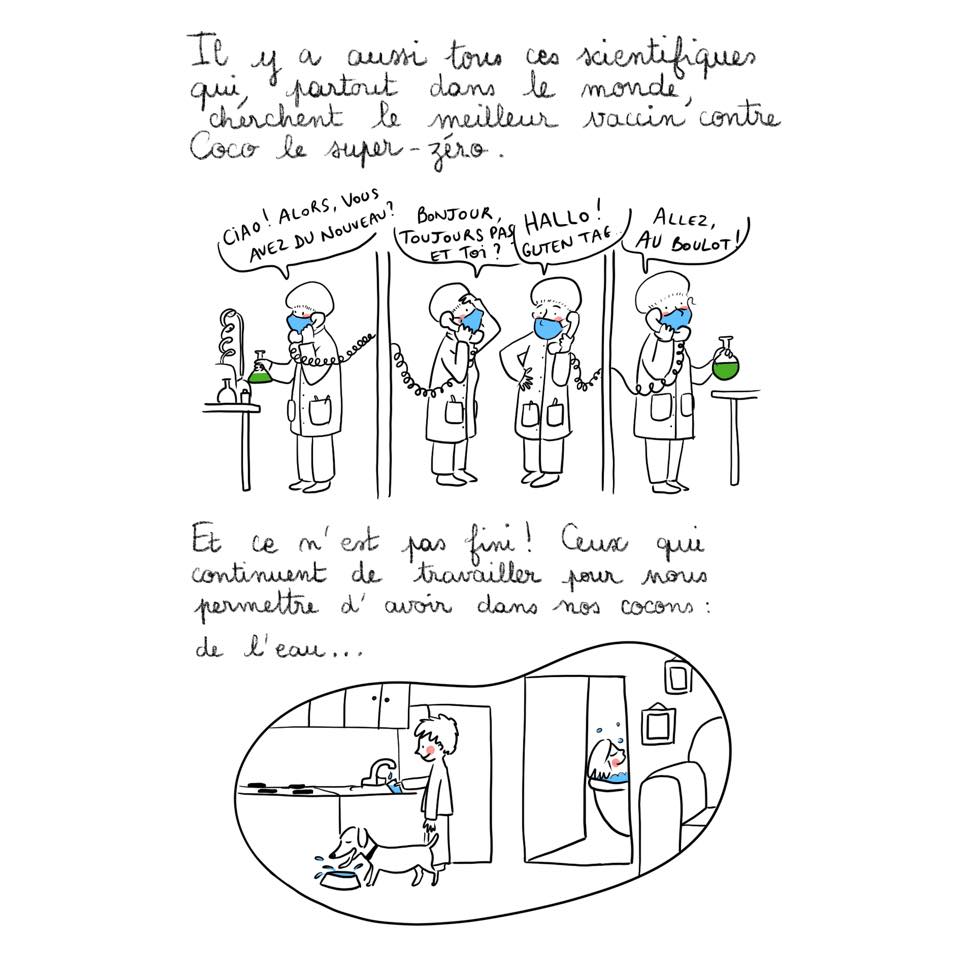 Il y a aussi tous ces scientifiques
qui, partout dans le monde,
cherchent le meilleur vaccin contre
Coco le super-zéro.
CIAO! ALORS, VOUS
AVEZ DU NOUVEAU?
BONJOUR,
TOUJOURS PAS
ET TOI?
HALLO!
GUTEN TAG
ALLEZ,
AU BOULOT!
Et ce n'est pas fini! Ceux qui
continuent de travailler pour nous
permettre d'avoir dans nos cocons:
de l'eau...